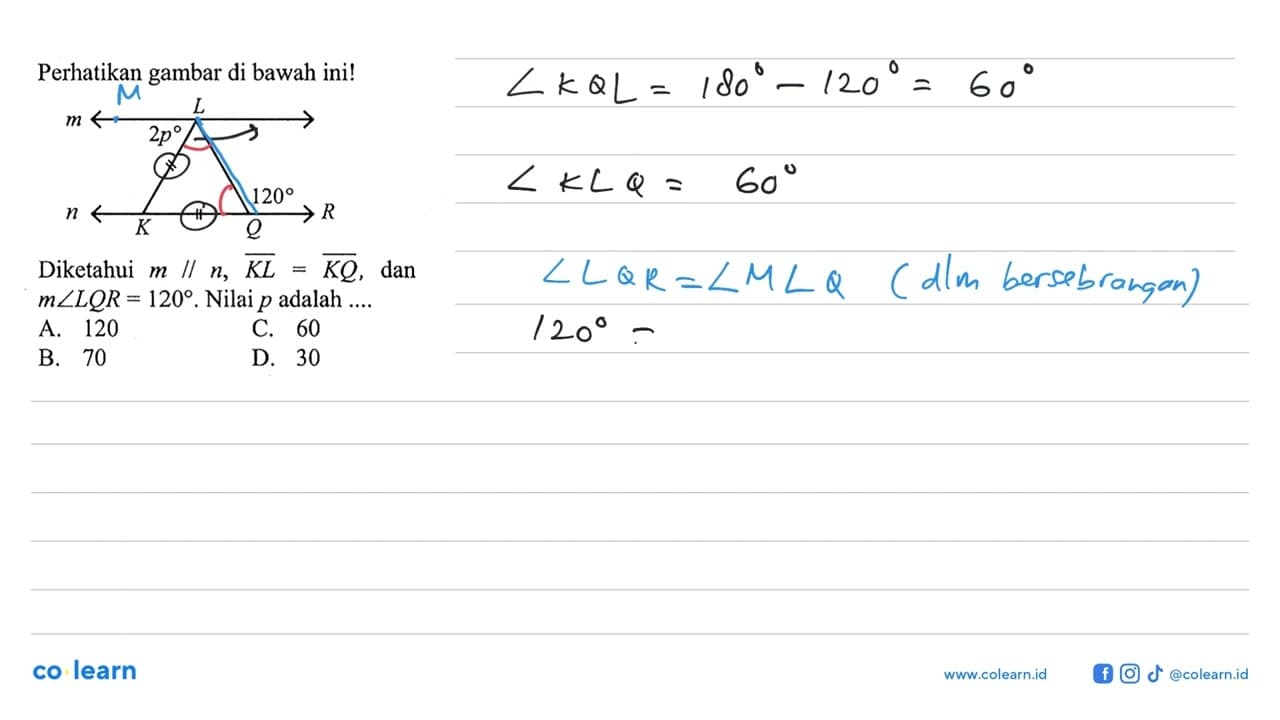 Perhatikan gambar di bawah ini!
M
L
m
2p°
120°
n
R
K
Q
Diketahui m // n, KL = KQ, dan
m∠LQR = 120°. Nilai p adalah ....
A. 120 C. 60
B. 70 D. 30
∠KQL = 180° - 120° = 60°
∠KLQ = 60°
∠LQR = ∠MLQ (dlm bersebrangan)
120° =
co learn
www.colearn.id
@colearn.id